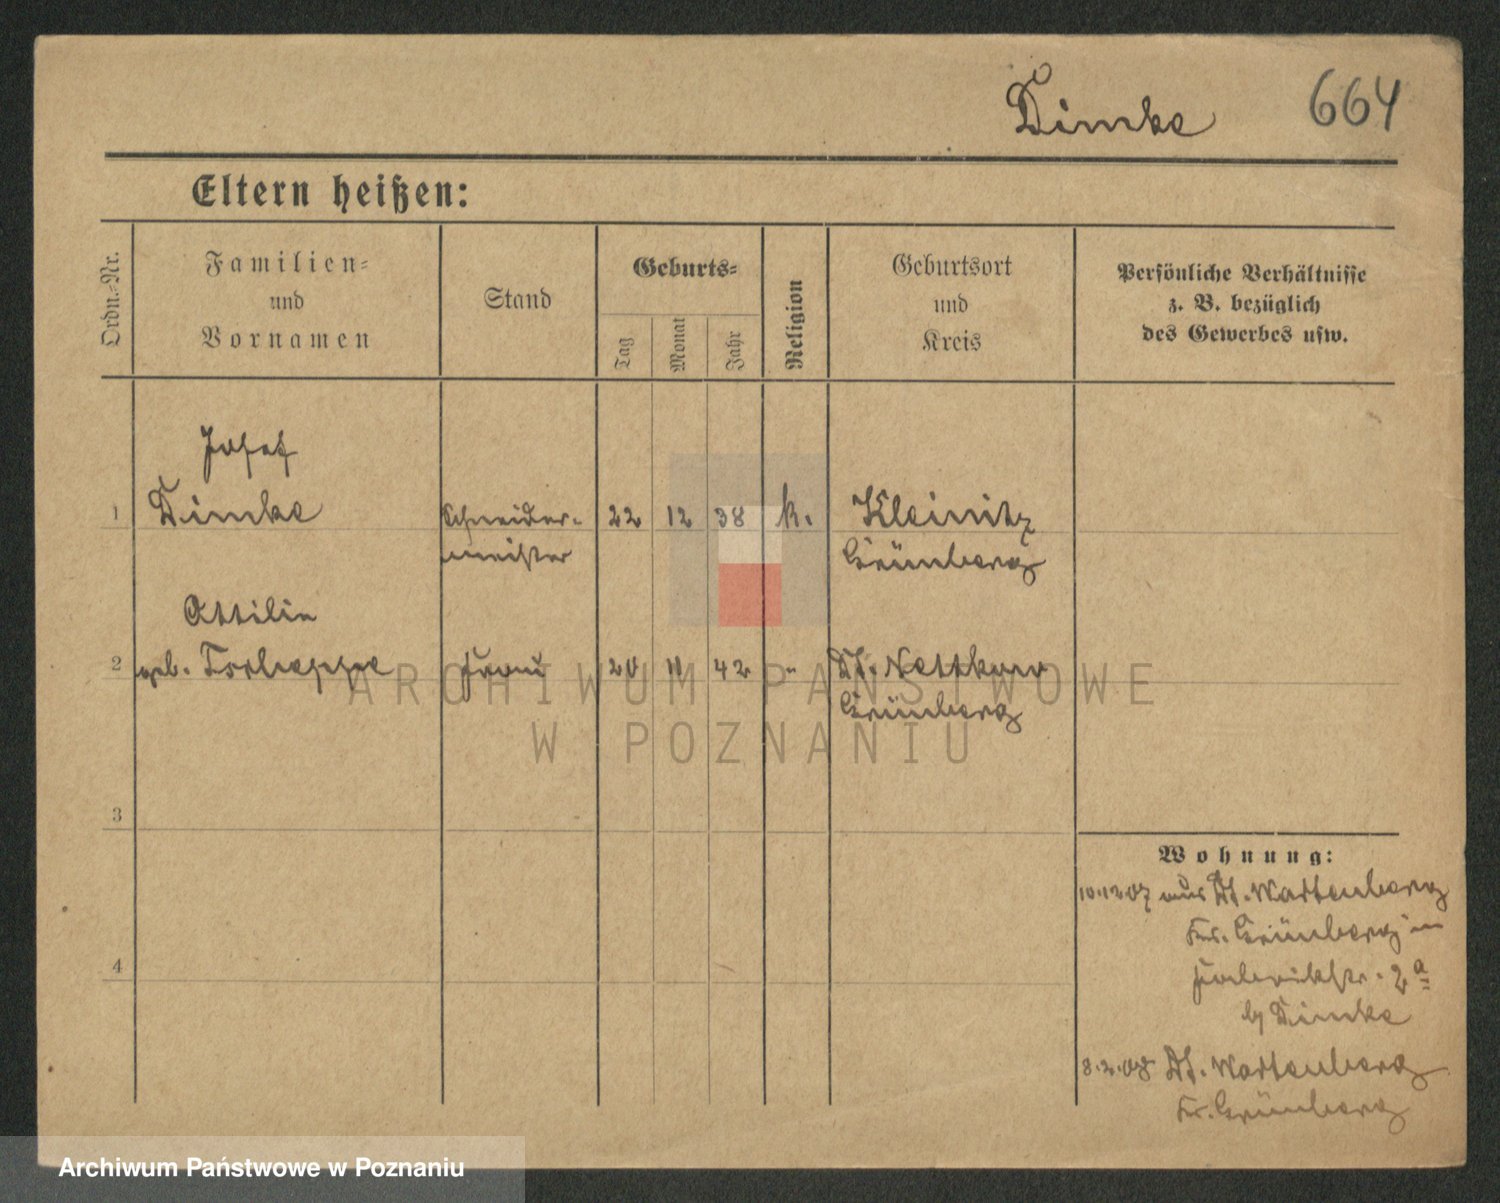 Dimke 664
Eltern heißen:
Ordn.-Nr.
Familien-
und
Vornamen
Stand
Geburts-
Tag
Monat
Jahr
Religion
Geburtsort
und
Kreis
Persönliche Verhältnisse
z. B. bezüglich
des Gewerbes usw.
Josef
1 Dimke Schneider- 22 12 38 k. Kleinitz
meister Grünberg
Ottilie
2 geb. Frau 20 11 42 " Dt. Nettkow
Grünberg
ARCHIWUM PAŃSTWOWE
W POZNANIU
3
Wohnung:
10.12.07 aus Dt. Wartenberg
Kr. Grünberg in
Fabrikstr. 2a
b/ Dimke
4
8.2.08 Dt. Wartenberg
Kr. Grünberg
Archiwum Państwowe w Poznaniu